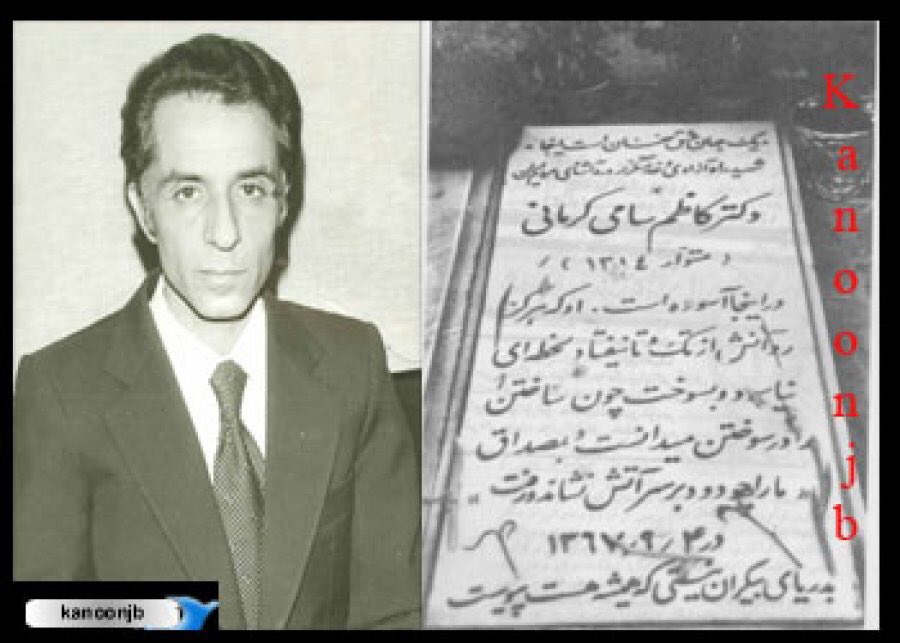 دکتر کاظم سامی کرمانی
( متولد ۱۳۱۴ )
در اینجا آسوده است. او که هرگز
از تک و تا نیفتاد و لحظه‌ای
و بسوخت چون ساختن را
در سوختن میدانست و بمصداق
ما را چو دود بر سر آتش نشاند و رفت
در ۴ / ۹ / ۱۳۶۷
بدریای بیکران نیستی که همیشه هست پیوست
Kanoonjb
kanoonjb